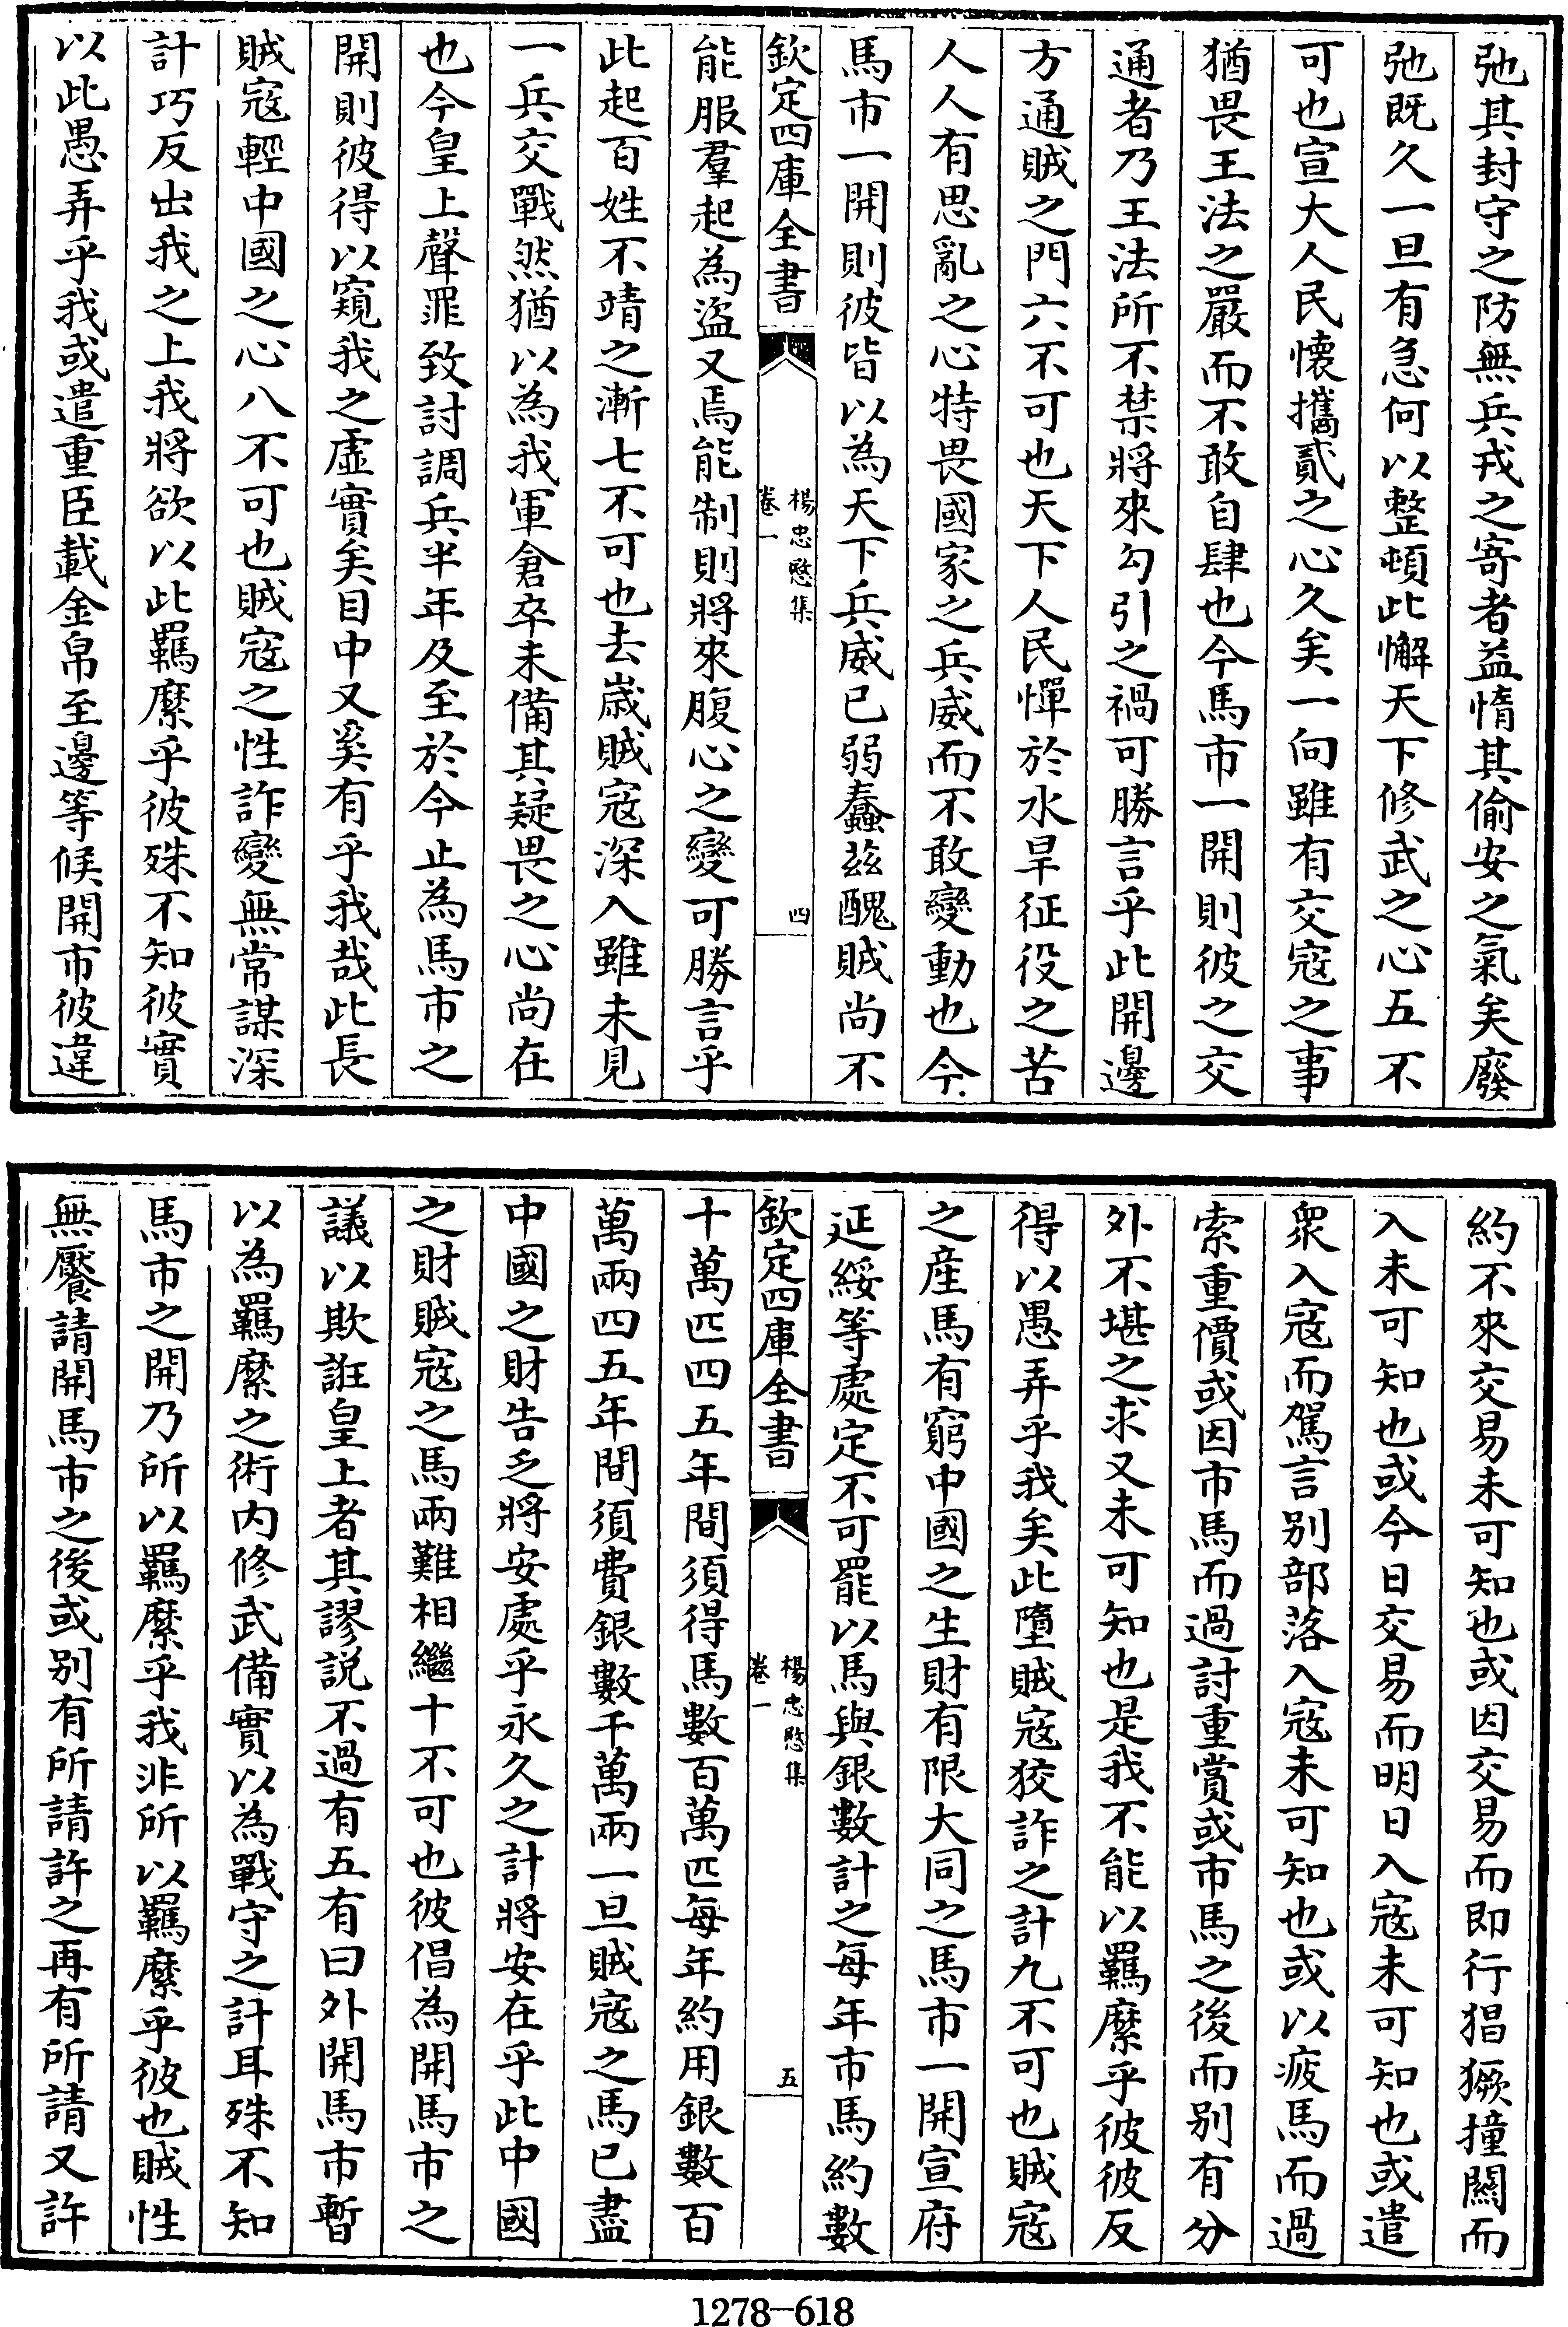 弛其封守之防無兵戎之寄者益惰其偷安之氣矣廢
弛既久一旦有急何以整頓此懈天下修武之心五不
可也宣大人民懷攜貳之心久矣一向雖有交寇之事
猶畏王法之嚴而不敢自肆也今馬市一開則彼之交
通者乃王法所不禁將來勾引之禍可勝言乎此開邊
方通賊之門六不可也天下人民憚於水旱征役之苦
人人有思亂之心特畏國家之兵威而不敢變動也今
馬市一開則彼皆以為天下兵威已弱蠢茲醜賊尚不
欽定四庫全書
楊忠愍集
卷一
四
能服羣起為盜又焉能制則將來腹心之變可勝言乎
此起百姓不靖之漸七不可也去歲賊寇深入雖未見
一兵交戰然猶以為我軍倉卒未備其疑畏之心尚在
也今皇上聲罪致討調兵半年及至於今止為馬市之
開則彼得以窺我之虛實矣目中又奚有乎我哉此長
賊寇輕中國之心八不可也賊寇之性詐變無常謀深
計巧反出我之上我將欲以此羈縻乎彼殊不知彼實
以此愚弄乎我或遣重臣載金帛至邊等候開市彼違
約不來交易未可知也或因交易而即行猖獗撞關而
入未可知也或今日交易而明日入寇未可知也或遣
衆入寇而駕言别部落入寇未可知也或以疲馬而過
索重價或因市馬而過討重賞或市馬之後而别有分
外不堪之求又未可知也是我不能以羈縻乎彼彼反
得以愚弄乎我矣此墮賊寇狡詐之計九不可也賊寇
之産馬有窮中國之生財有限大同之馬市一開宣府
延綏等處定不可罷以馬與銀數計之每年市馬約數
欽定四庫全書
楊忠愍集
卷一
五
十萬匹四五年間須得馬數百萬匹每年約用銀數百
萬兩四五年間須費銀數千萬兩一旦賊寇之馬已盡
中國之財告乏將安處乎永久之計將安在乎此中國
之財賊寇之馬兩難相繼十不可也彼倡為開馬市之
議以欺誑皇上者其謬説不過有五有曰外開馬市暫
以為羈縻之術内修武備實以為戰守之計耳殊不知
馬市之開乃所以羈縻乎我非所以羈縻乎彼也賊性
無饜請開馬市之後或别有所請許之再有所請又許
1278—618